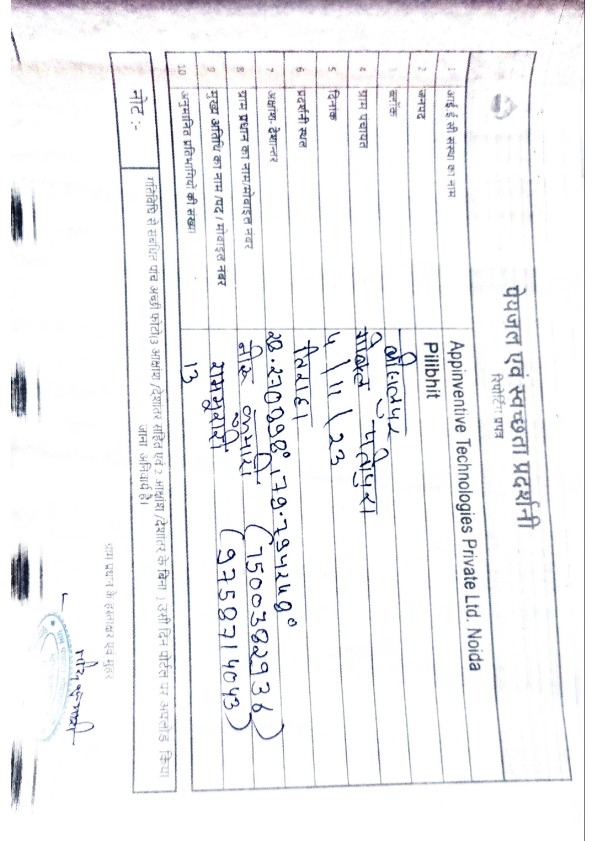 पेयजल एवं स्वच्छता प्रदर्शनी
रिपोर्टिंग प्रपत्र
1 आई ई सी संस्था का नाम Appinventive Technologies Private Ltd. Noida
2 जनपद Pilibhit
3 ब्लॉक बीसलपुर
4 ग्राम पंचायत पतिपुरा
5 दिनांक 4/11/23
6 प्रदर्शनी स्थल
7 अक्षांश- देशान्तर
8 ग्राम प्रधान का नाम/मोबाइल नंबर (7500382936)
9 मुख्य अतिथि का नाम /पद / मोबाइल नंबर (9758714043)
10 अनुमानित प्रतिभागियों की संख्या 13
नोट :-
गतिविधि से संबंधित पांच अच्छी फोटो(3 आक्षांश /देशांतर सहित एवं 2 आक्षांश /देशांतर के बिना ) उसी दिन पोर्टल पर अपलोड किया
जाना अनिवार्य है।
ग्राम प्रधान के हस्ताक्षर एवं मुहर